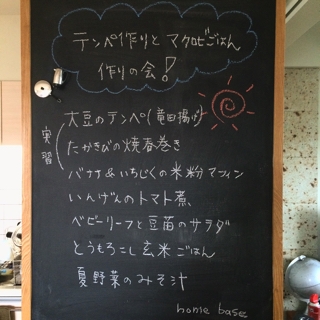 テンペ作りと マクロビごはん
作りの会!
実習
大豆のテンペ(竜田揚げ)
たかきびの焼春巻き
バナナ&いちじくの米粉マフィン
いんげんのトマト煮
ベビーリーフと豆苗のサラダ
とうもろこし玄米ごはん
夏野菜のみそ汁
home base